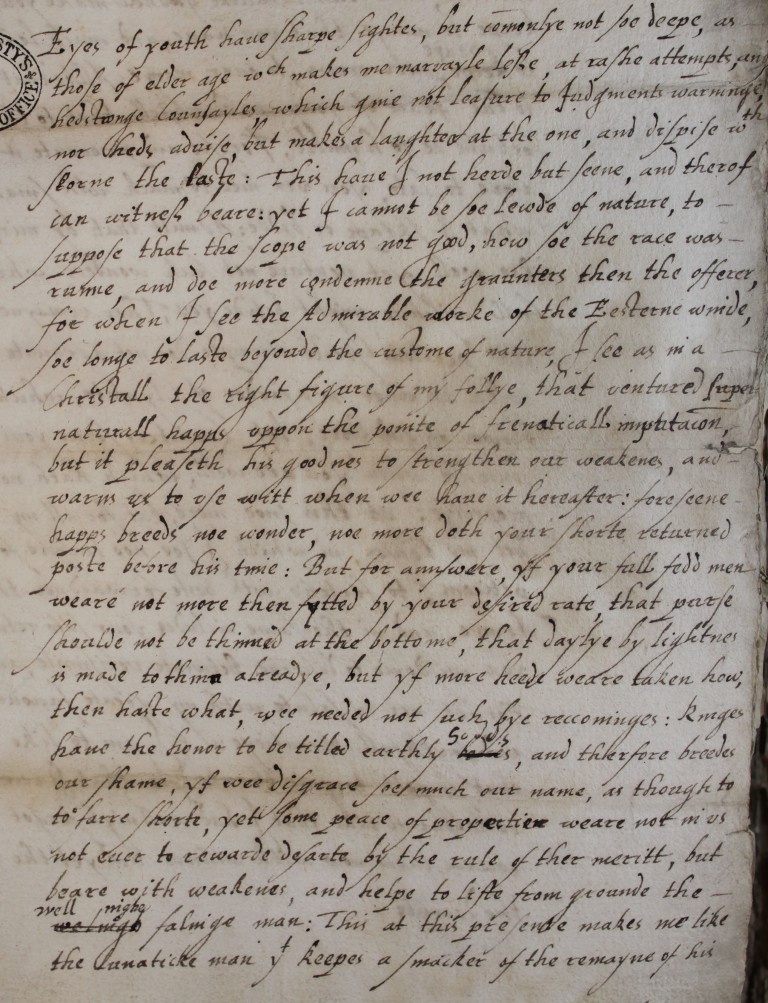 STYS
OFFICE
Eyes of youth have sharpe sightes, but comonlye not soe deepe, as
those of elder age wch makes me marvayle lesse, at rashe attempts, and
hedstronge Counsayles which give not leasure to Judgments warninge,
nor heds advise, but makes a laughter at the one, and dispise wth
skorne the laste: This have I not herde but seene, and therof
can witness beare: yet I cannot be soe lewde of nature, to
suppose that the scope was not good, how soe the race was
runne, and doe more condemne the graunters then the offerer,
for when I see the Admirable worke of the Eesterne winde,
soe longe to laste beyonde the custome of nature, I see as in a
Christall the right figure of my follye, that ventured super
naturall happs uppon the pointe of frenaticall imputacon,
but it pleaseth his goodnes to strengthen our weakenes, and
warns us to use witt when wee have it hereafter: foreseene
happs breeds noe wonder, noe more doth your shorte returned
poste before his time: But for annswere, yf your full fedd men
weare not more then fytted by your desired rate, that purse
shoulde not be thinned at the bottome, that daylye by lightnes
is made to thinn alreadye, but yf more heede weare taken how,
then haste what, wee needed not such bye reccominges: Kinges
have the honor to be titled earthly Godds, and therfore breedes
our shame, yf wee disgrace soe much our name, as though to
to farre shorte, yet some peace of propertier weare not in us
not ever to rewarde desarte by the rule of ther meritt, but
beare with weakenes, and helpe to lifte from grounde the
well nighe falinge man: This at this presente makes me like
the lunaticke man yt keepes a smacker of the remayne of his